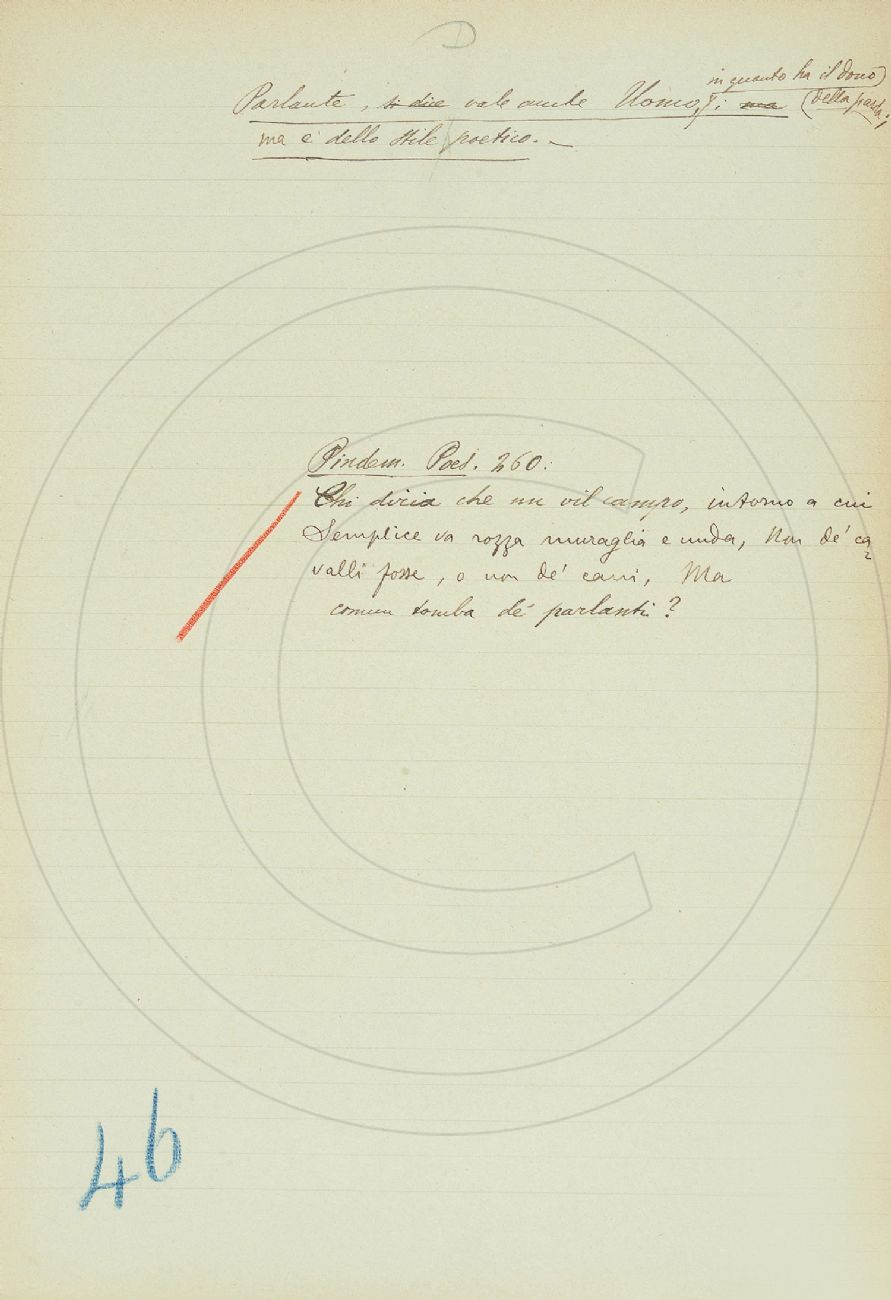 Parlante, si dice vale anche Uomo, in quanto ha il dono
della parla; ma
ma è dello stile poetico. —
Pindem. Poes. 260:
Chi diria che un vil campo, intorno a cui
Semplice va rozza muraglia e nuda, Non de' ca
valli fosse, o non de' cani, Ma
comun tomba de' parlanti?
46